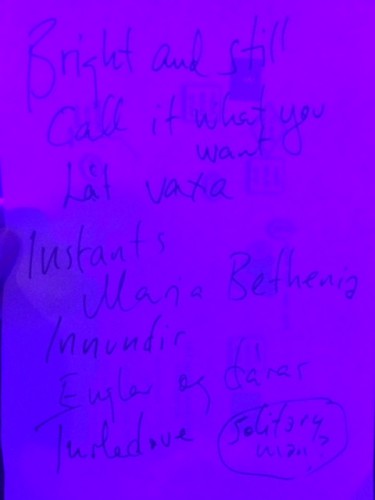 Bright and still
Call it what you
want
Låt vaxa
Instants
Mana Bethenia
Innundir
Englar og dárar
Turledove
Solitary
man?